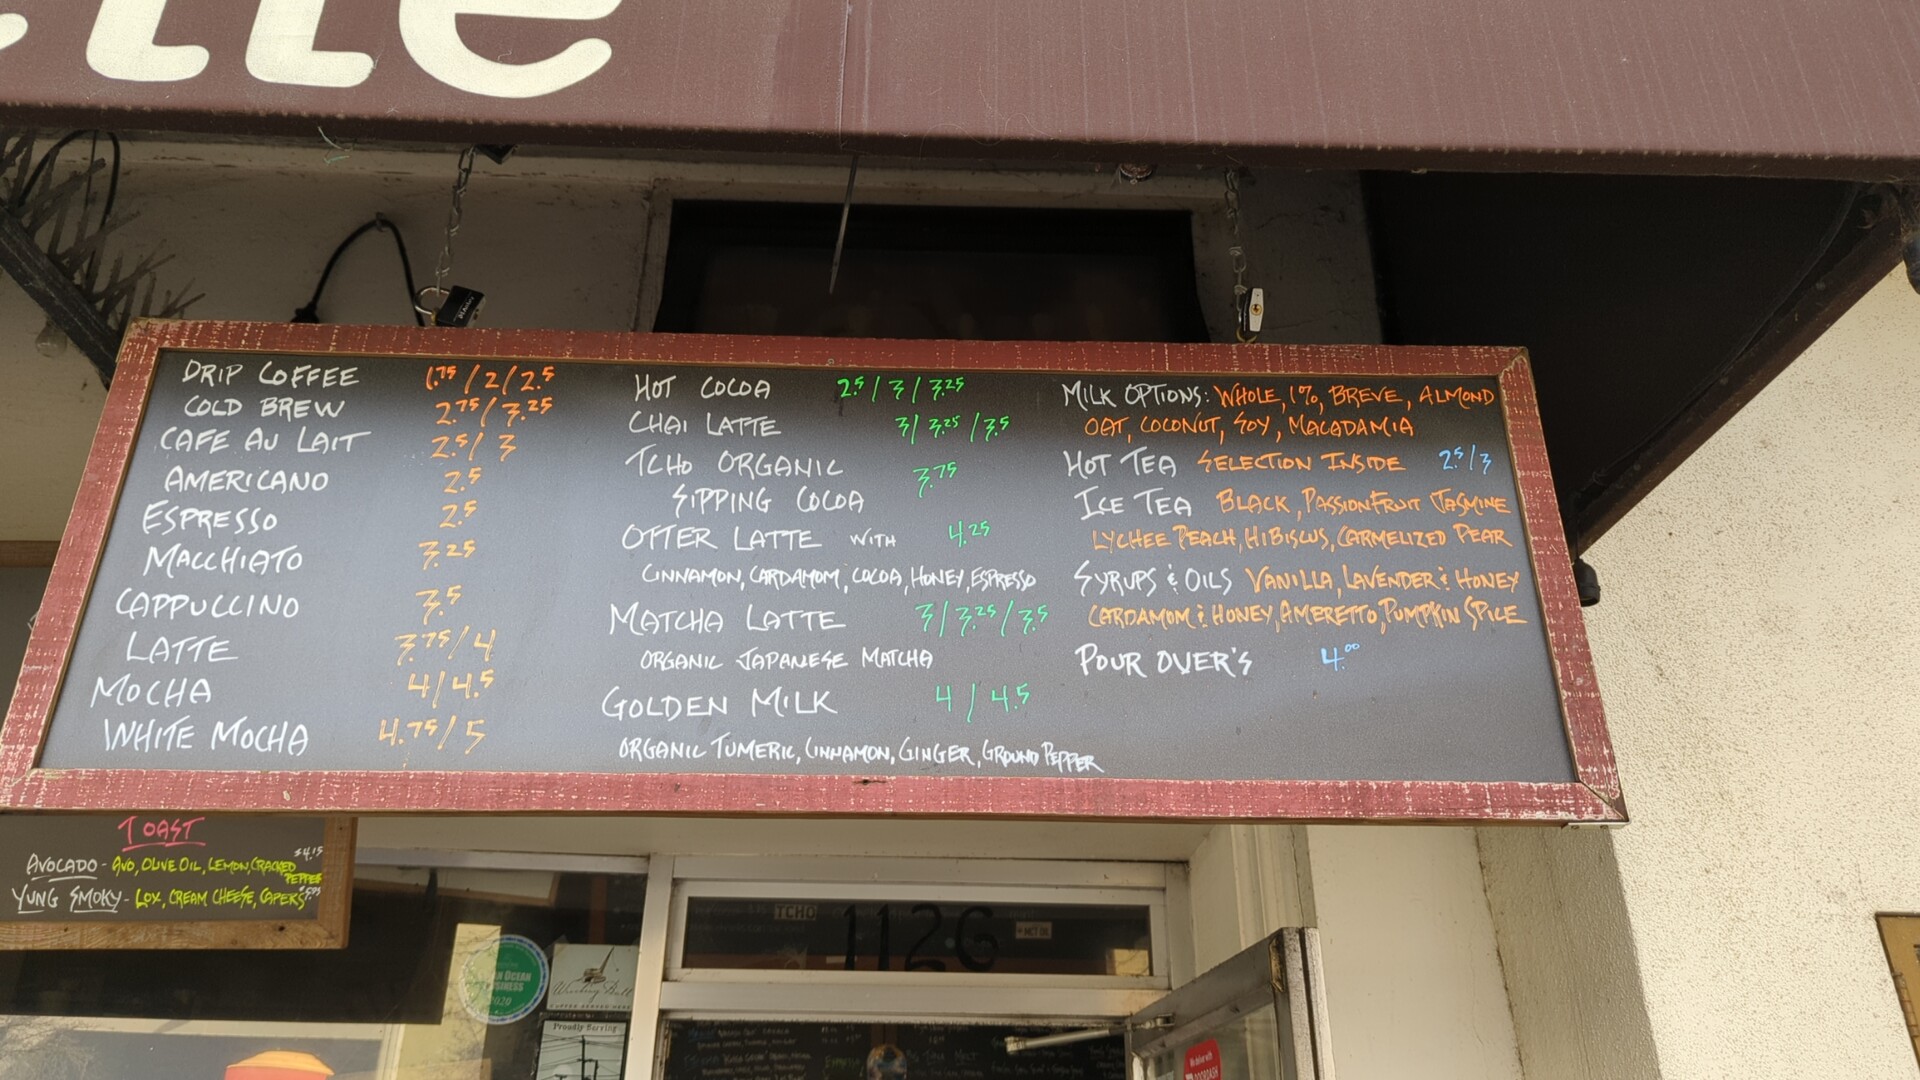 tte
DRIP COFFEE 1.75 / 2 / 2.5
COLD BREW 2.75 / 3.25
CAFE AU LAIT 2.5 / 3
AMERICANO 2.5
ESPRESSO 2.5
MACCHIATO 3.25
CAPPUCCINO 3.5
LATTE 3.75 / 4
MOCHA 4 / 4.5
WHITE MOCHA 4.75 / 5
HOT COCOA 2.5 / 3 / 3.25
CHAI LATTE 3 / 3.25 / 3.5
TCHO ORGANIC 3.75
SIPPING COCOA
OTTER LATTE WITH 4.25
CINNAMON, CARDAMOM, COCOA, HONEY, ESPRESSO
MATCHA LATTE 3 / 3.25 / 3.5
ORGANIC JAPANESE MATCHA
GOLDEN MILK 4 / 4.5
ORGANIC TUMERIC, CINNAMON, GINGER, GROUND PEPPER
MILK OPTIONS: WHOLE, 1%, BREVE, ALMOND
OAT, COCONUT, SOY, MACADAMIA
HOT TEA SELECTION INSIDE 2.5 / 3
ICE TEA BLACK, PASSIONFRUIT JASMINE
LYCHEE PEACH, HIBISCUS, CARMELIZED PEAR
SYRUPS & OILS VANILLA, LAVENDER & HONEY
CARDAMOM & HONEY, AMERETTO, PUMPKIN SPICE
POUR OVER'S 4.00
TOAST
AVOCADO - AVO, OLIVE OIL, LEMON, CRACKED $4.15
PEPPER
YUNG SMOKY - LOX, CREAM CHEESE, CAPERS
TCHO
1126
OCEAN
2020
Proudly Serving
DOORDASH